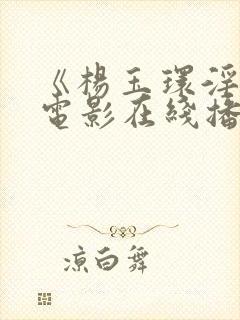 《楊玉環淫
電影在綫播
涼白舞